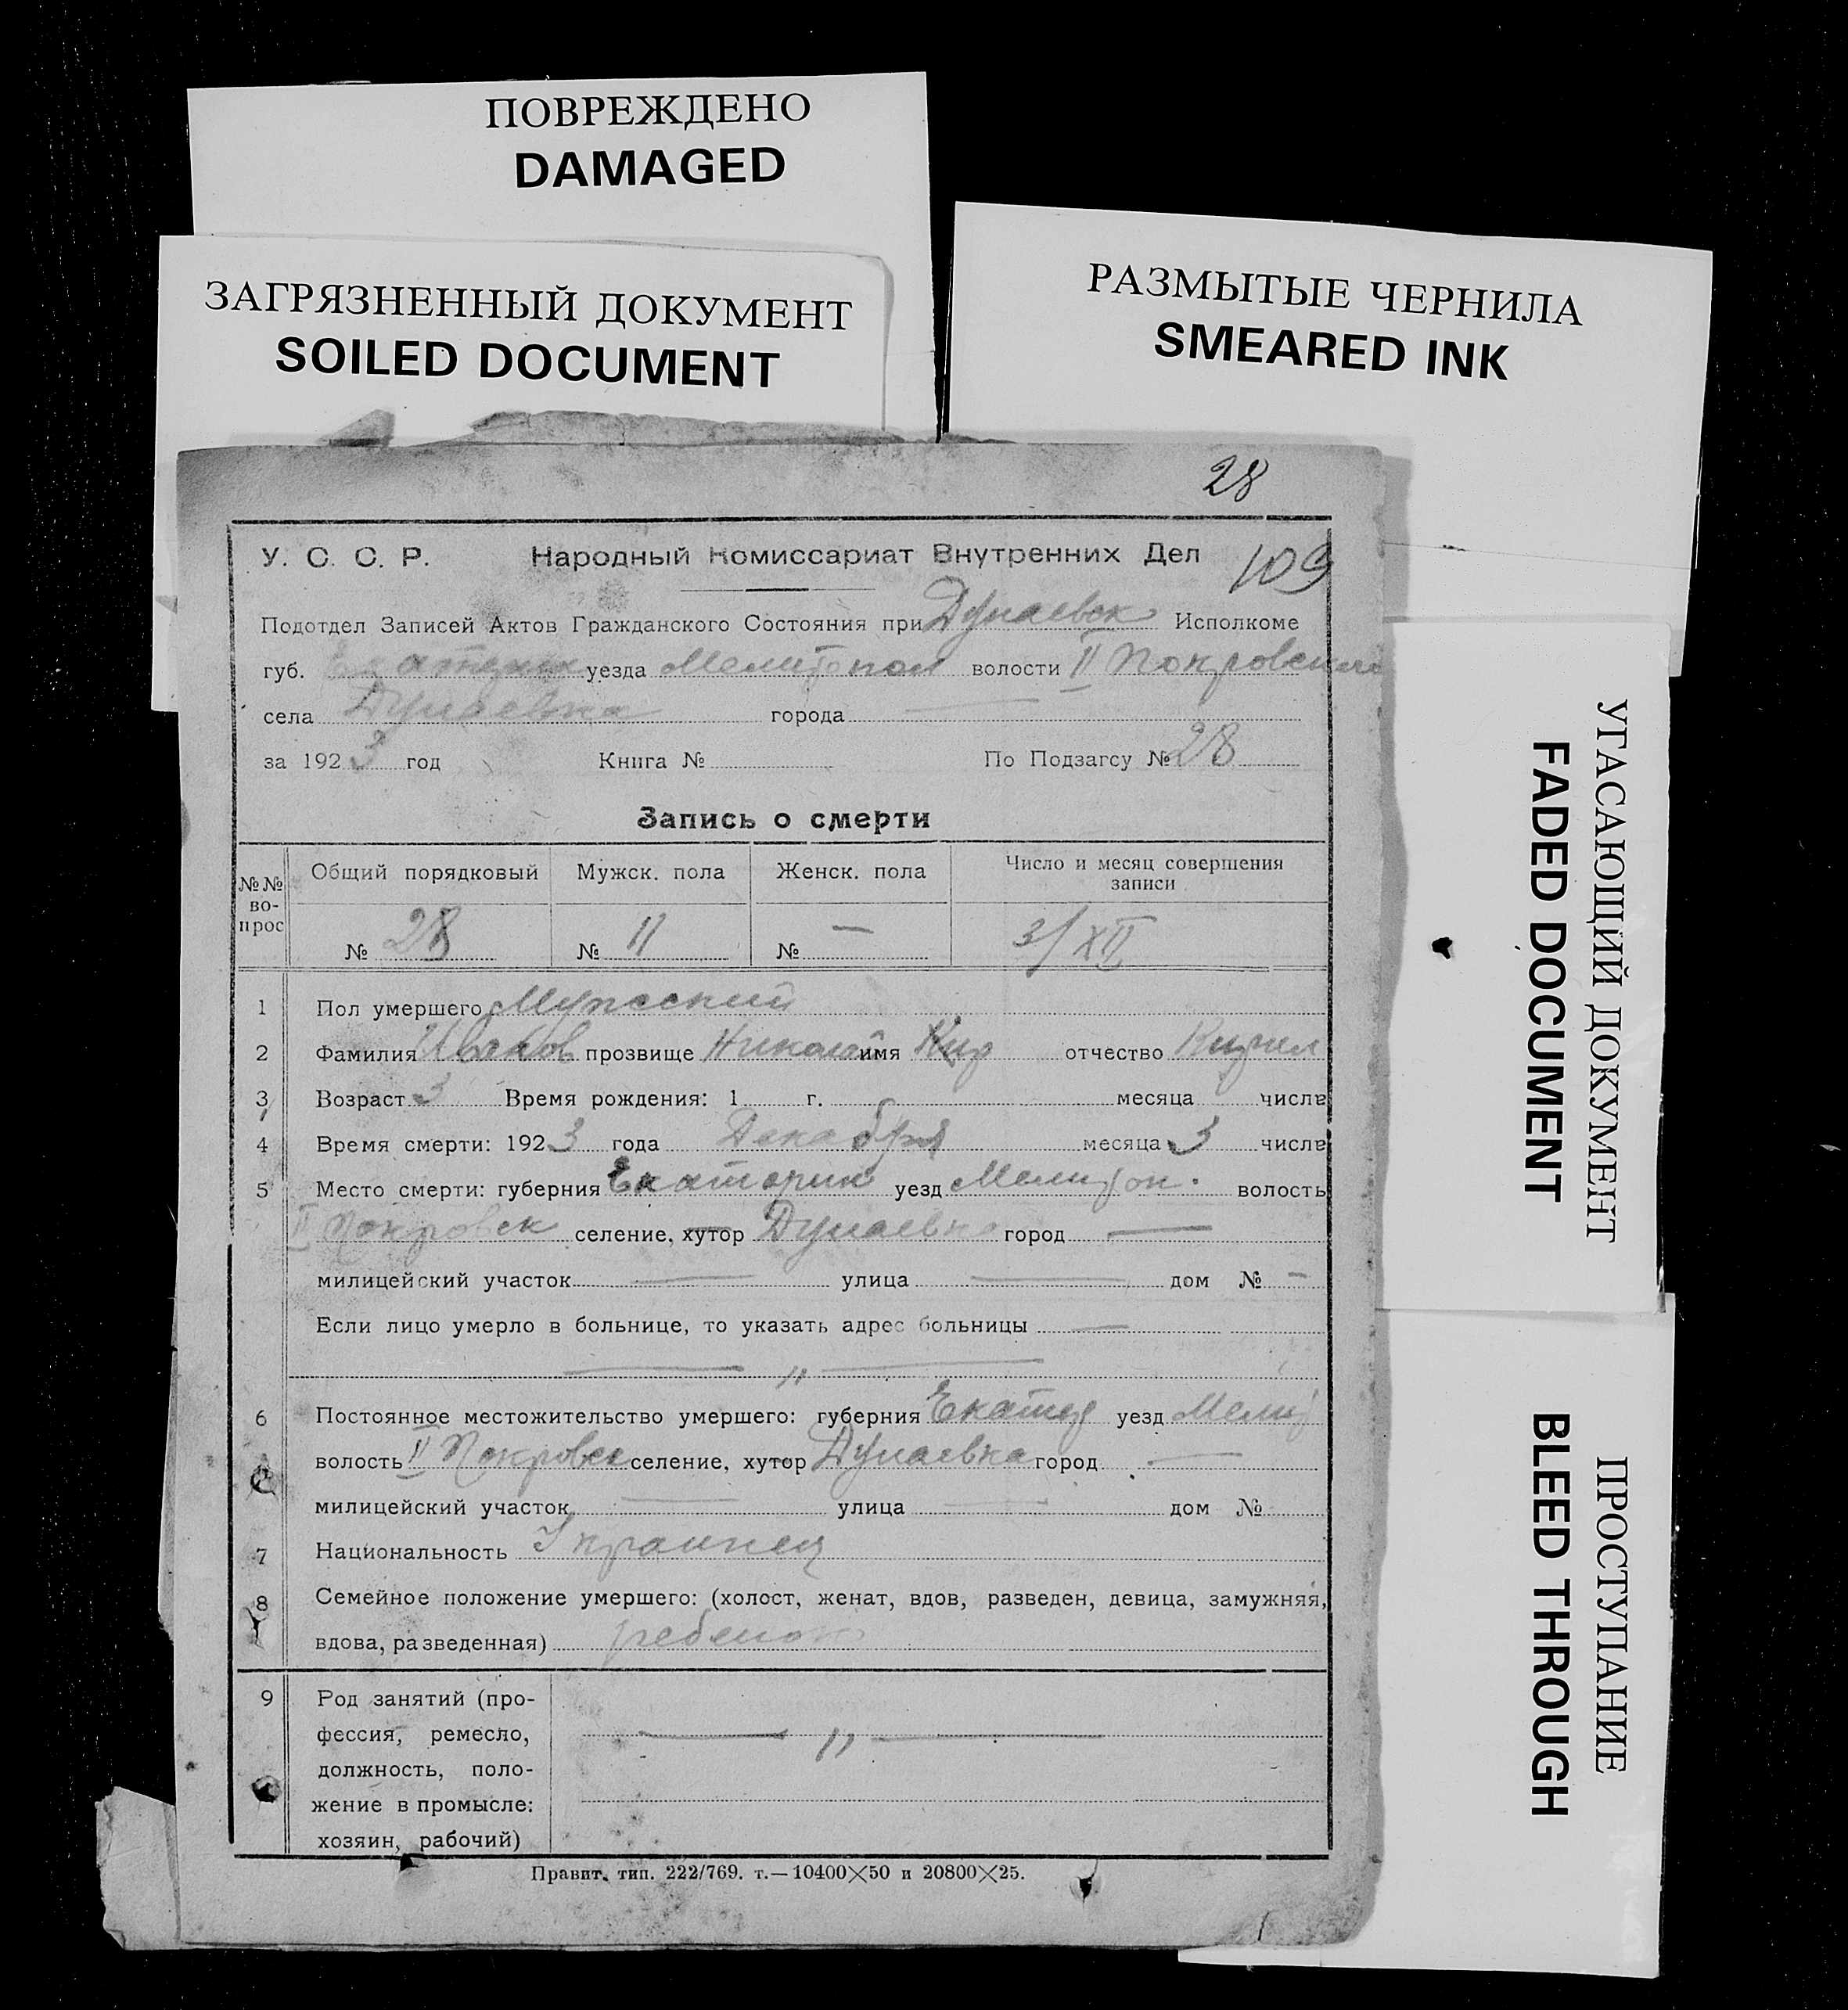 ПОВРЕЖДЕНО
DAMAGED
ЗАГРЯЗНЕННЫЙ ДОКУМЕНТ
SOILED DOCUMENT
РАЗМЫТЫЕ ЧЕРНИЛА
SMEARED INK
28
У. С. С. Р. Народный Комиссариат Внутренних Дел 109
Подотдел Записей Актов Гражданского Состояния при Дунаевск Исполкоме
губ. уезда Мелитопол волости II Покровской
села Дунаевка города —
за 1923 год Книга № По Подзагсу № 28
Запись о смерти
№№ во- прос Общий порядковый Мужск. пола Женск. пола Число и месяц совершения записи
№ 28 № 11 № — 3/XII
1 Пол умершего Мужский
2 Фамилия Иванов прозвище Николай имя отчество Кирил
3 Возраст 3 Время рождения: 1 г. месяца числа
4 Время смерти: 1923 года Декабря месяца 3 числа
5 Место смерти: губерния Екатерин уезд Мелитоп. волость
II Покровск селение, хутор Дунаевка город —
милицейский участок — улица — дом № —
Если лицо умерло в больнице, то указать адрес больницы —
— " —
6 Постоянное местожительство умершего: губерния Екатер уезд Мелит
волость II Покровск селение, хутор Дунаевка город —
милицейский участок — улица — дом №
7 Национальность Украинец
8 Семейное положение умершего: (холост, женат, вдов, разведен, девица, замужняя,
вдова, разведенная) ребенок
9 Род занятий (про-
фессия, ремесло, — " —
должность, поло-
жение в промысле:
хозяин, рабочий)
Правит. тип. 222/769. т.—10400×50 и 20800×25.
УГАСАЮЩИЙ ДОКУМЕНТ
FADED DOCUMENT
ПРОСТУПАНИЕ
BLEED THROUGH